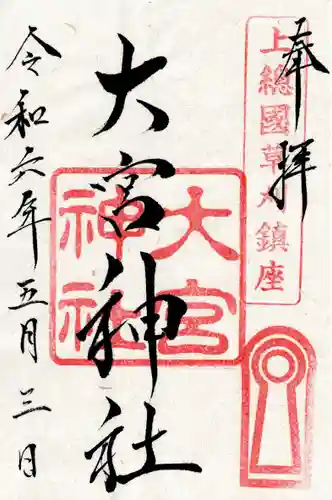 奉拝
上總國草刈鎮座
大宮神社
大宮
神社
令和六年五月三日